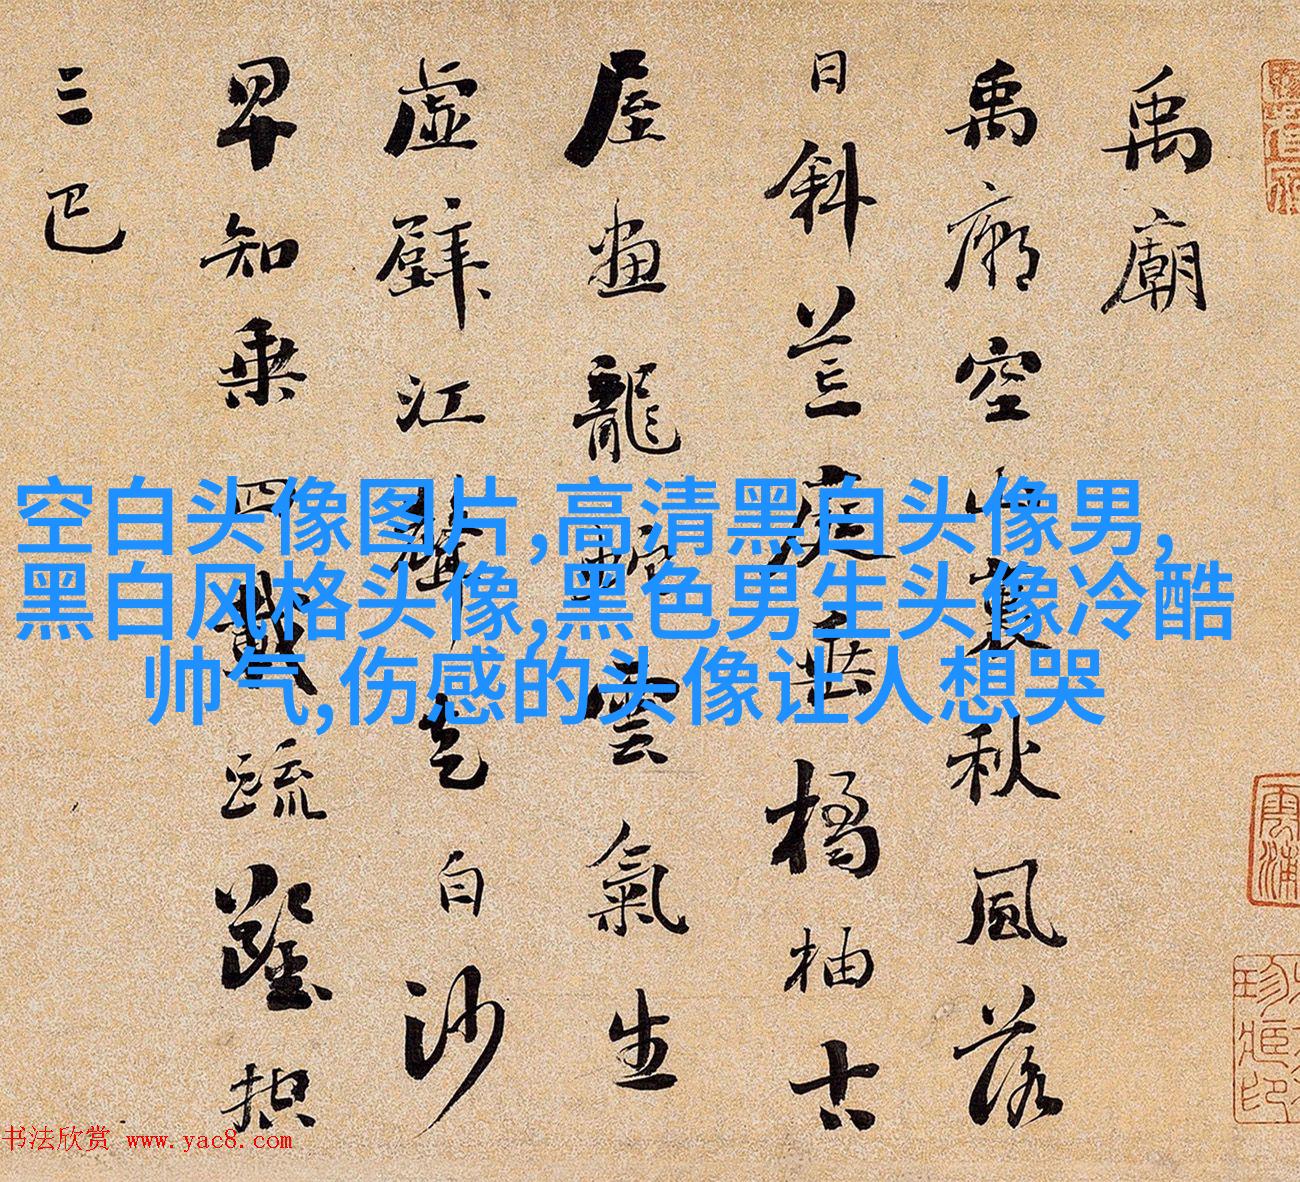 禹廟
禹廟空山裏秋風落
日斜荒庭垂橘柚古
屋畫龍蛇雲氣生
虛壁江聲走白沙
早知乘四載疏鑿控
三巴
空白头像图片,高清黑白头像男,
黑白风格头像,黑色男生头像冷酷
帅气,伤感的头像让人想哭
书法欣赏 www.yac8.com